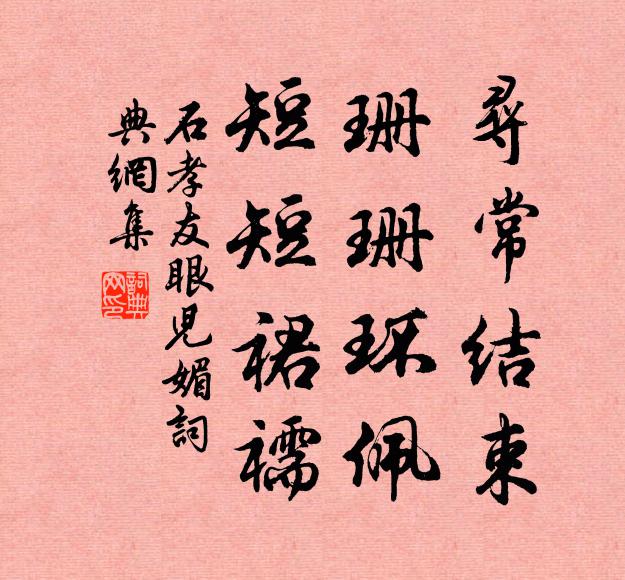 尋常結束
珊珊环佩
短短裙襦
石孝友眼児媚詞
典網集
詞典
网印